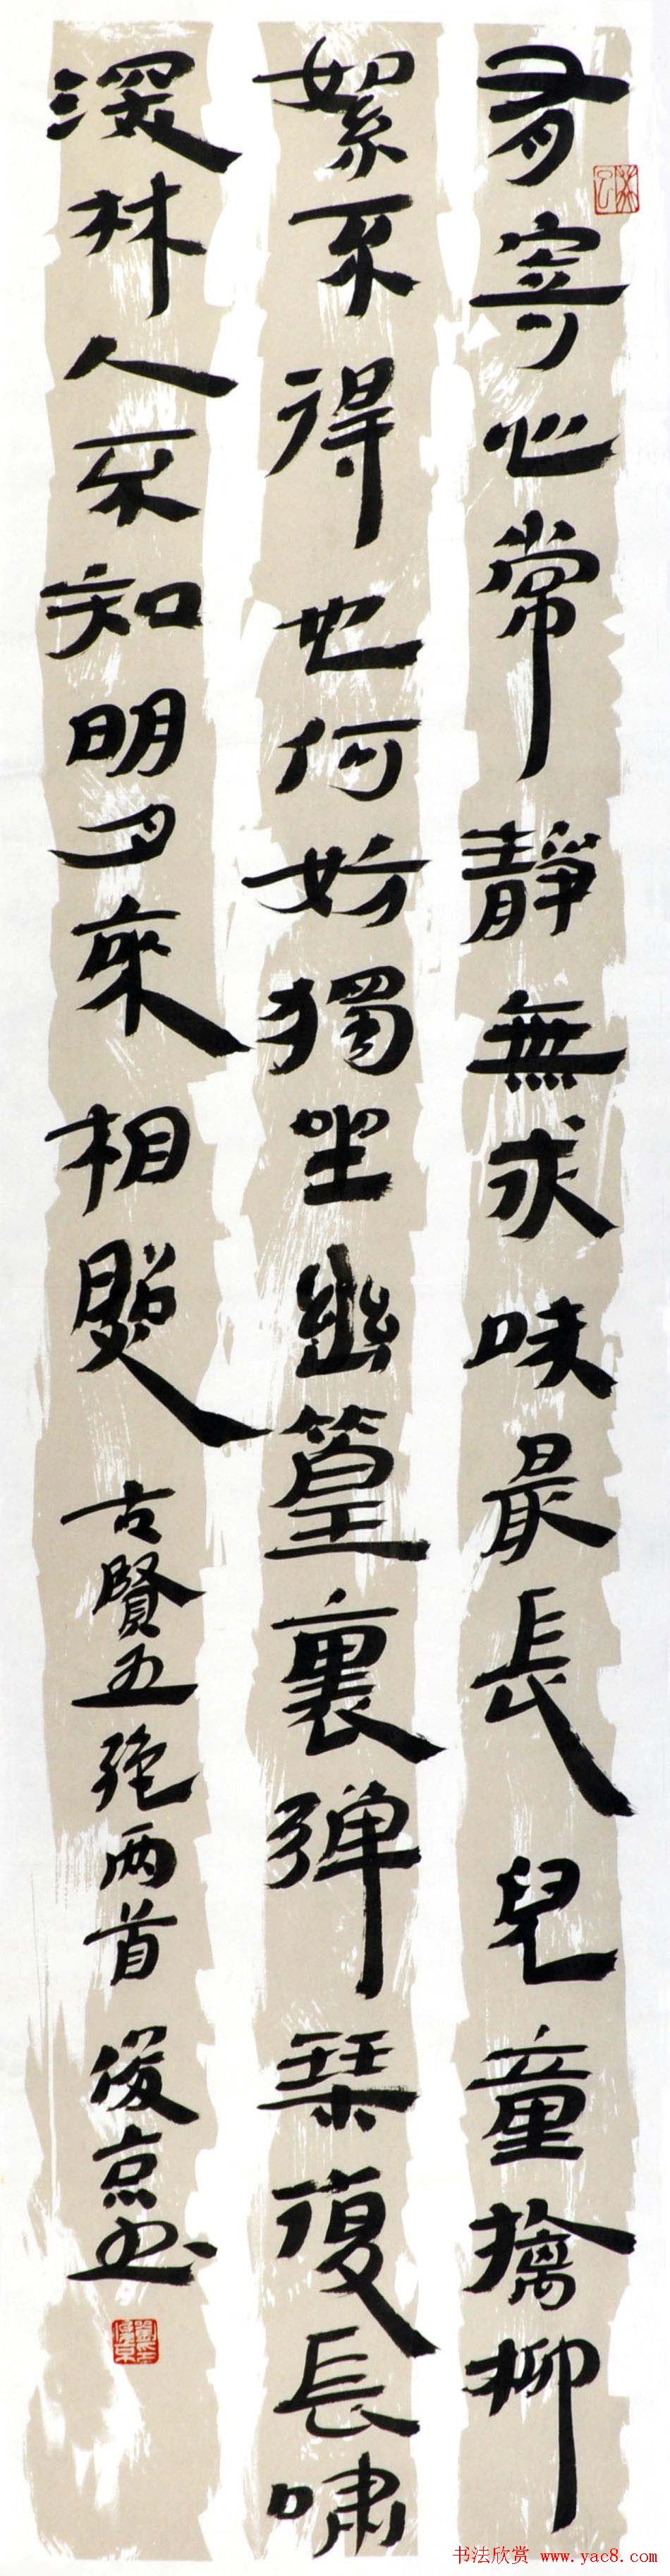 有寄心常靜無求味最長兒童擒柳
絮不得也何妨獨坐幽篁裏弹琹復長嘯
深林人不知明月來相照 古賢五絶两首 俊京书
书法欣赏 www.yac8.com